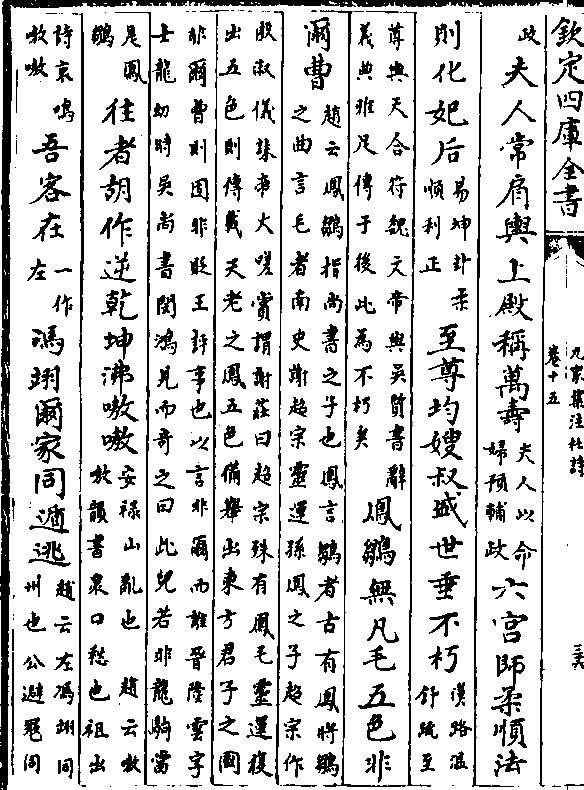 欽定四庫全書
九家集注杜詩
卷十五
政夫人常肩輿上殿稱萬壽夫人以命婦預輔政六宮師柔順法
則化妃后易坤卦柔順利正至尊均嫂叔盛世垂不朽漢路温舒疏至
尊與天合符魏文帝與吳質書辭義典雅足傳于後此為不朽矣鳳雛無凡毛五色非
爾曹趙云鳳雛指尚書之子也鳳言雛者古有鳳將雛之曲言毛者南史謝超宗靈運孫鳳之子超宗作
殷淑儀誄帝大嗟賞謂謝莊曰超宗殊有鳳毛靈運復出五色則傳載天老之鳳五色備舉出東方君子之國
非爾曹則因非貶王評事也以言非爾而誰晉陸雲字士龍幼時吳尚書閔鴻見而奇之曰此兒若非龍駒當
是鳳雛往者胡作逆乾坤沸嗷嗷安祿山亂也趙云嗷於韻書衆口愁也祖出
詩哀鳴嗷嗷吾客在一作左馮翊爾家同遁逃趙云左馮翊同州也公避冦同